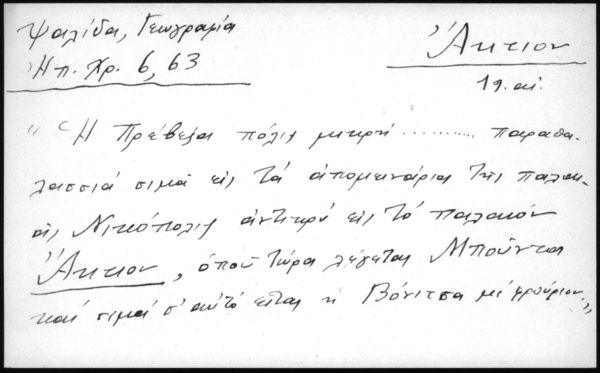 Ψαλίδα, Γεωγραφία
Ἠπ. Χρ. 6, 63
Ἄκτιον
19. αἰ.
"Ἡ Πρέβεζα πόλις μικρή .......... παραθα-
λασσιά σιμά εἰς τά ἀπομεινάρια τῆς παλαι-
ᾶς Νικόπολις ἀντικρύ εἰς τό παλαιόν
Ἄκτιον, ὁποῦ τώρα λέγεται Μπούντα
καί σιμά σ' αὐτό εἶται ἡ Βόνιτσα μέ φρούριον"